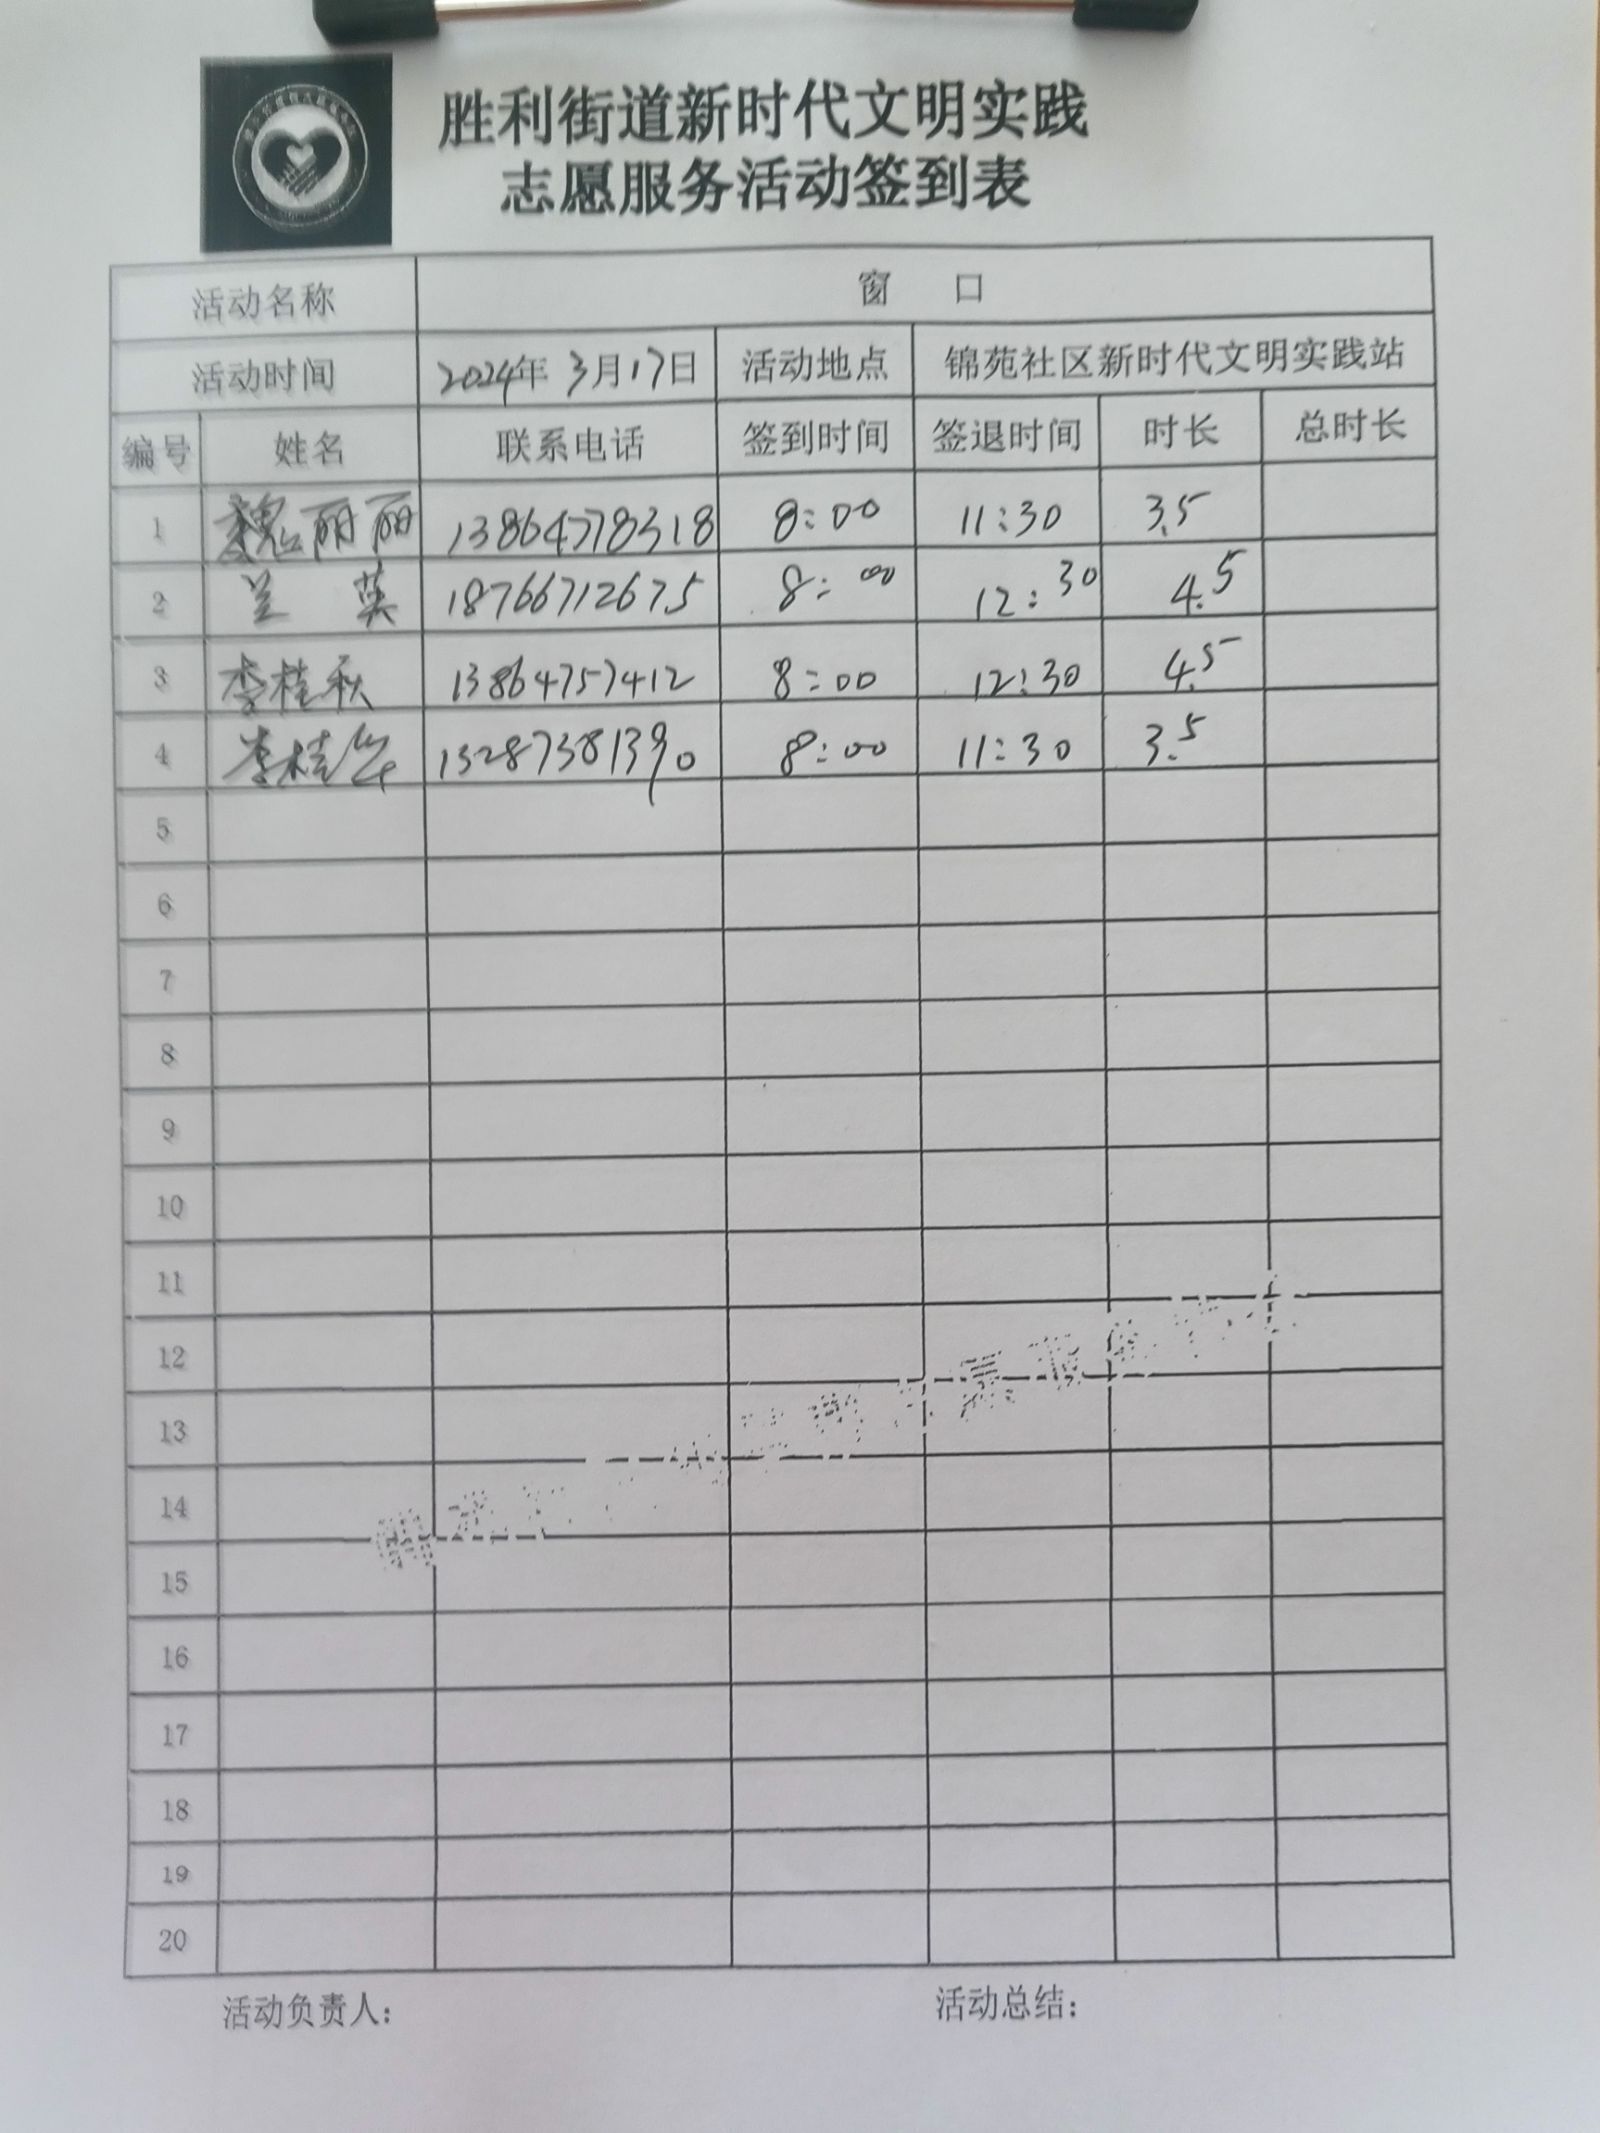 胜利街道新时代文明实践
志愿服务活动签到表
活动名称 窗 口
活动时间 2024年 3月17日 活动地点 锦苑社区新时代文明实践站
编号 姓名 联系电话 签到时间 签退时间 时长 总时长
1 魏丽丽 13864778318 8:00 11:30 3.5
2 兰 英 18766712675 8:00 12:30 4.5
3 李桂秋 13864757412 8:00 12:30 4.5
4 李桂华 13287381390 8:00 11:30 3.5
5
6
7
8
9
10
11
12
13
14
15
16
17
18
19
20
活动负责人: 活动总结: